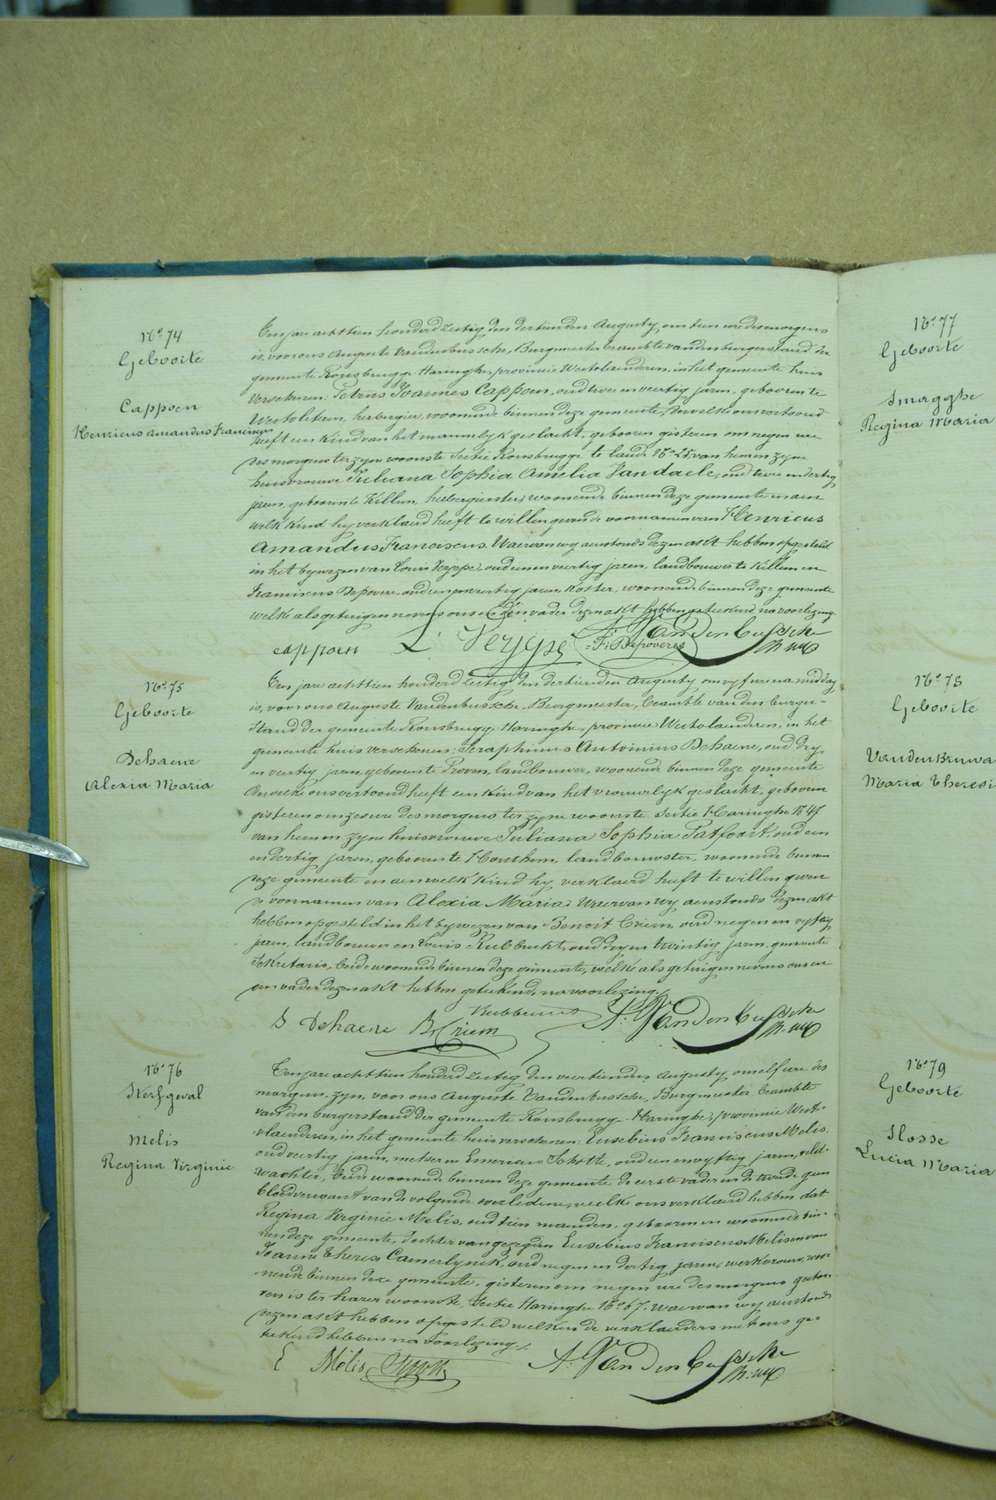 N° 74
Geboorte
Cappoen
Henricus Amandus Franciscus
Ten jare achttien honderd zestig den dertienden Augusty, om tien ure des morgens
is, voor ons Auguste Vandenbussche, Burgmeester beambte van den burgerstand der
gemeente Rousbrugge Haringhe, provincie Westvlaenderen, in het gemeente huis
verschenen: Petrus Joannes Cappoen, oud twee en veertig jaren, geboren te
Westvleteren, herbergier, woonende binnen deze gemeente, dewelke ons vertoond
heeft een kind van het mannelyk geslacht, geboren gisteren om negen ure
des morgens ter zyne woonste Sectie Rousbrugge van hem en zyne
huisvrouwe Juliana Sophia Amelia Vandaele, oud twee en dertig
jaren, geboren te Killem, herbergierster, woonende binnen deze gemeente en aen
welk kind hy verklaerd heeft te willen geven de voornamen van Henricus
Amandus Franciscus. Waervan wy aenstonds dezen akt hebben opgesteld
in het bywezen van Louis Veryepe, oud een en veertig jaren, landbouwer te Killem en
Franciscus Depovere, oud jaren, koster, woonende binnen deze gemeente
welke als getuigen nevens ons en den vader dezen akt hebben geteekend na voorlezing.
cappoen L. Veryepe F. Depovere A. Vandenbussche
N° 75
Geboorte
Dehaene
Alexia Maria
Ten jare achttien honderd zestig den dertienden Augusty om vyf ure na middag
is, voor ons Auguste Vandenbussche, Burgmeester, beambte van den burger-
stand der gemeente Rousbrugge Haringhe, provincie Westvlaenderen, in het
gemeente huis verschenen: Seraphinus Antoinius Dehaene, oud dry
en veertig jaren, geboren te Proven, landbouwer, woonend binnen deze gemeente
dewelke ons vertoond heeft een kind van het vrouwelyk geslacht, geboren
gisteren om zes ure des morgens ter zyne woonste Sectie Haringhe
van hem en zyne huisvrouwe Juliana Sophia Tatfoort, oud een
en dertig jaren, geboren te Houthem, landbouwster, woonende binnen
deze gemeente en aen welk kind hy verklaerd heeft te willen geven
de voornamen van Alexia Maria. Waervan wy aenstonds dezen akt
hebben opgesteld in het bywezen van Benoit Criem, oud negen en vyftig
jaren, landbouwer en Louis Rubbrecht, oud dry en twintig jaren, gemeente
Sekretaris, beide woonende binnen deze gemeente, welke als getuigen nevens ons en
den vader dezen akt hebben geteekend, na voorlezing.
S Dehaene B. Criem Rubbrecht A. Vandenbussche
N° 76
Sterfgeval
Melis
Regina Virginie
Ten jare achttien honderd zestig den veertienden Augusty, om elf ure des
morgens zyn, voor ons Auguste Vandenbussche, Burgmeester beambte
van den burgerstand der gemeente Rousbrugge Haringhe, provincie West-
vlaenderen, in het gemeente huis verschenen: Eusebius Franciscus Melis,
oud veertig jaren, metser en Emerien Schotte, oud een en vyftig jaren, veld-
wachter, beide woonende binnen deze gemeente, de eerste vader en de tweede geen
bloedverwant van de volgende overledene, welke ons verklaerd hebben dat
Regina Virginie Melis, oud tien maenden, geboren en woonende bin-
nen deze gemeente, dochter van gezegden Eusebius Franciscus Melis en van
Joanna Theresa Camerlynck, oud negen en dertig jaren, werkvrouw, woo-
nende binnen deze gemeente, gisteren om negen ure des morgens gestor-
ven is ter harer woonste, Sectie Haringhe N° 67. Waervan wy aenstonds
dezen akt hebben opgesteld welken de verklaerders met ons ge-
teekend hebben na voorlezing.
E Melis Schotte A. Vandenbussche
N° 77
Geboorte
Smagghe
Regina Maria
N° 78
Geboorte
Vanden Bruwa
Maria Theresi
N° 79
Geboorte
Hosse
Lucia Maria